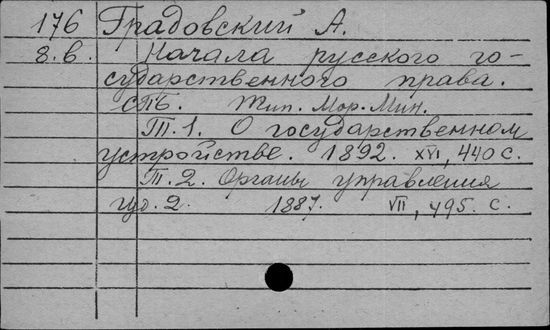 176 Градовский А.
8.в. Начала русского го-
сударственного права.
СПб. Тип. Мор. Мин.
Т. 1. О государственном
устройстве. 1892. XVI, 440 с.
Т. 2. Органы управления
изд. 2. 1887. VII, 495. с.